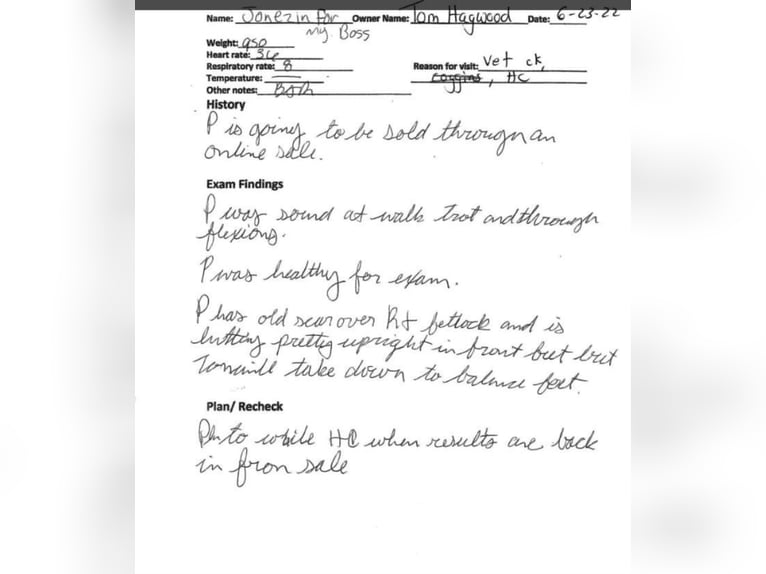 Name: Jonezin for Owner Name: Tom Hagwood Date: 6-23-22
My Boss
Weight: 950
Heart rate: 36
Respiratory rate: 8 Reason for visit: Vet ck,
Temperature: — coggins, HC
Other notes: BAR
History
P is going to be sold through an
online sale.
Exam Findings
P was sound at walk trot and through
flexions.
P was healthy for exam.
P has old scar over Rt fetlock and is
pretty upright in front feet but
Tom will take down to balance feet.
Plan/ Recheck
to while HC when results are back
in from sale